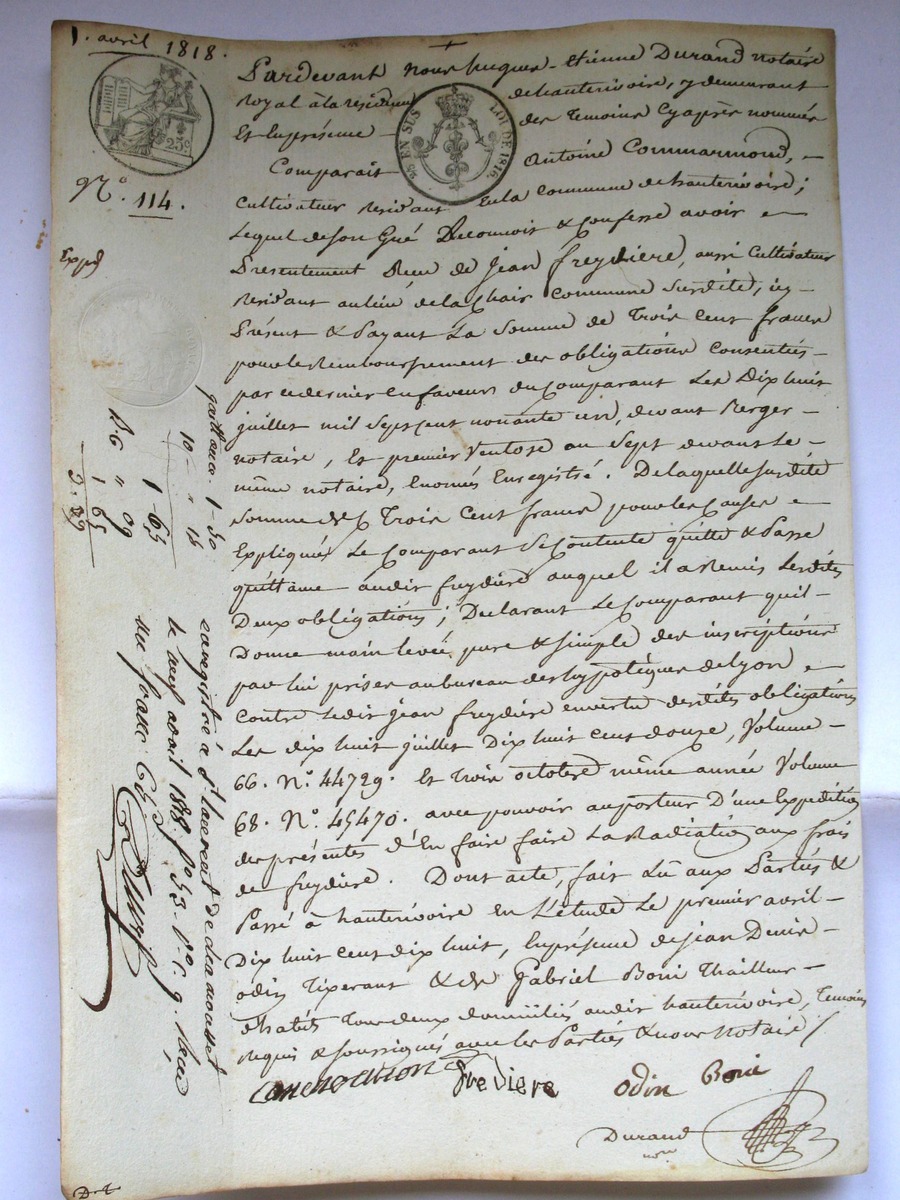 1. avril 1818.
N.° 114.
Expé
25 c.
25 EN SUS
LOI DE 1816.
Pardevant nous Jacques-Etienne Durand notaire
Royal à la résidence de hauterivoire, y demeurant
Et En présence des temoins Cyaprès nommés
Comparait Antoine Commarmond,
Cultivateur residant En la Commune de hauterivoire;
Lequel de son Gré Reconnoit & Confesse avoir
Présentement Recu de Jean freydiere, aussi Cultivateur
Residant au lieu de la Chair Commune Surdité, icy
Présent & Payant La Somme de Trois Cent francs
pour le Remboursement des obligations Consenties
par ce dernier en faveur du Comparant Les Dix huit
juillet mil Sept cent nonante un, devant Berger
notaire, Et premier Ventose an Sept devant Le
même notaire, Enregistré. De laquelle Surdité
Somme de Trois Cent francs pour les Causes
Expliquées Le Comparant Se Contente quitte & Passe
quittance audit freydiere auquel il a Remis Lesdites
Deux obligations; Déclarant Le Comparant quil
Donne main levée pure & Simple des inscriptions
par lui prises au bureau des hypotèques de Lyon
Contre Ledit jean freydiere en vertu desdites obligations
Les dix huit juillet Dix huit Cent douze, Volume
66. N.° 44729. Et Trois octobre même année Volume
68. N.° 45470. avec pouvoir au porteur D'une Expédition
des présentes d'En faire faire La Radiation aux frais
de freydiere. Dont acte, fait Lû aux Parties &
Passé à hauterivoire En L'étude Le premier avril
Dix huit Cent dix huit, En présence de Jean Denis
odin Tixerant & de Gabriel Boni Thailleur
d'habits Tous deux domiciliés audit hauterivoire, Temoins
Requis & Soussignés avec les Parties & nous Notaire
Frediere odin Boni
Durand
nore
1 - 50
10 - " 15
1 65
D.C " 09
1 65
enregistré à St Laurent de chamousset
le neuf avril 1818. f° 53. v° c. 9. Recu
un franc 65 c.